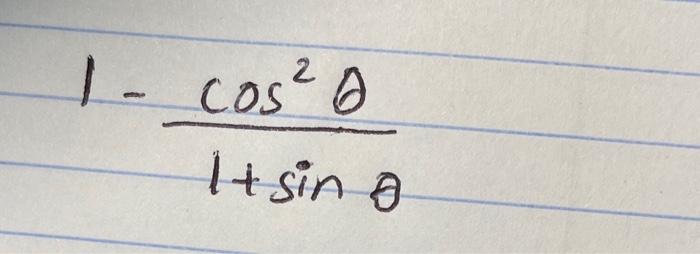 1 - cos² θ
1 + sin θ